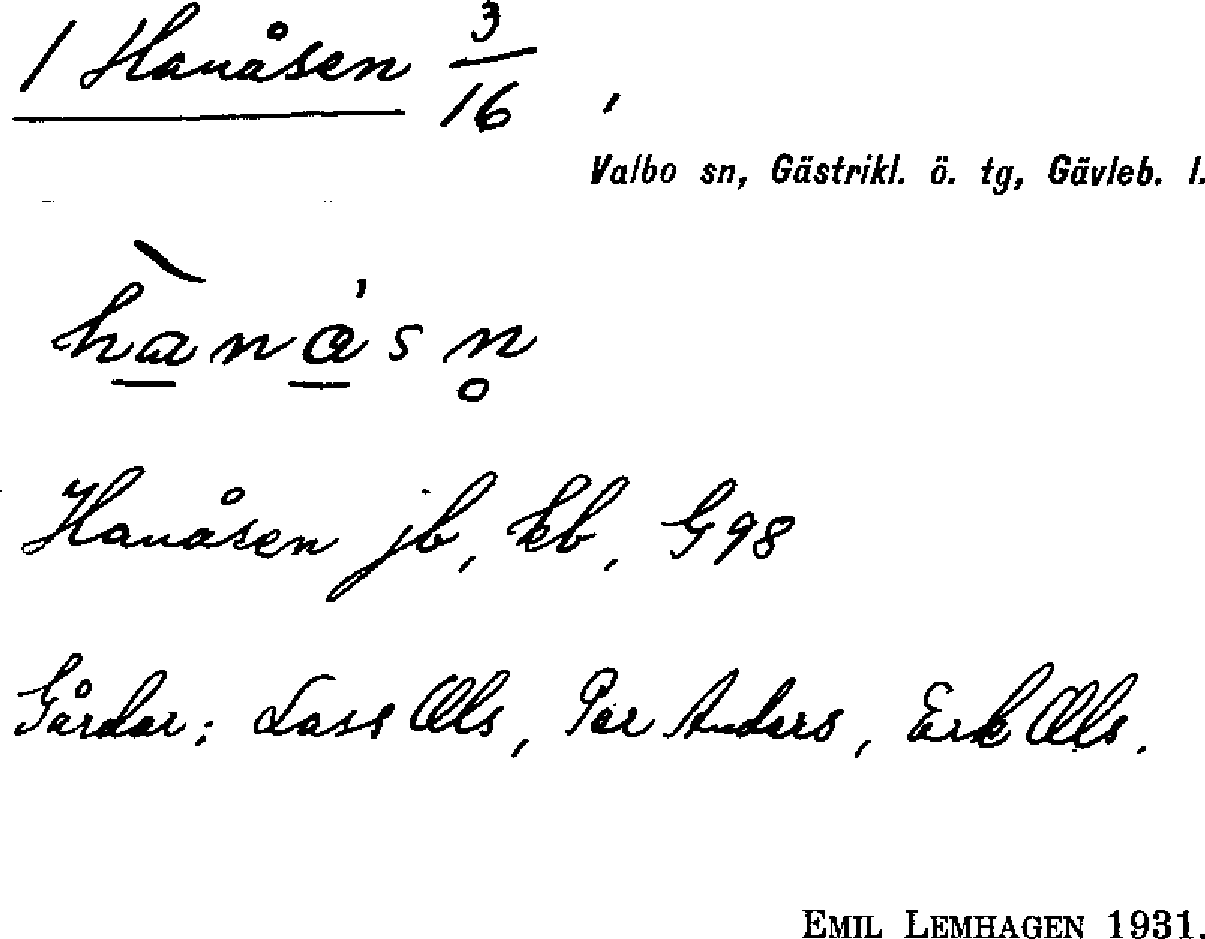 1 Hanåsen 3/16 ,
Valbo sn, Gästrikl. ö. tg, Gävleb. l.
hànásn̥
Hanåsen jb, kb, G 98
Gårdar: Lass Ols, Per Anders, Erk Ols.
EMIL LEMHAGEN 1931.